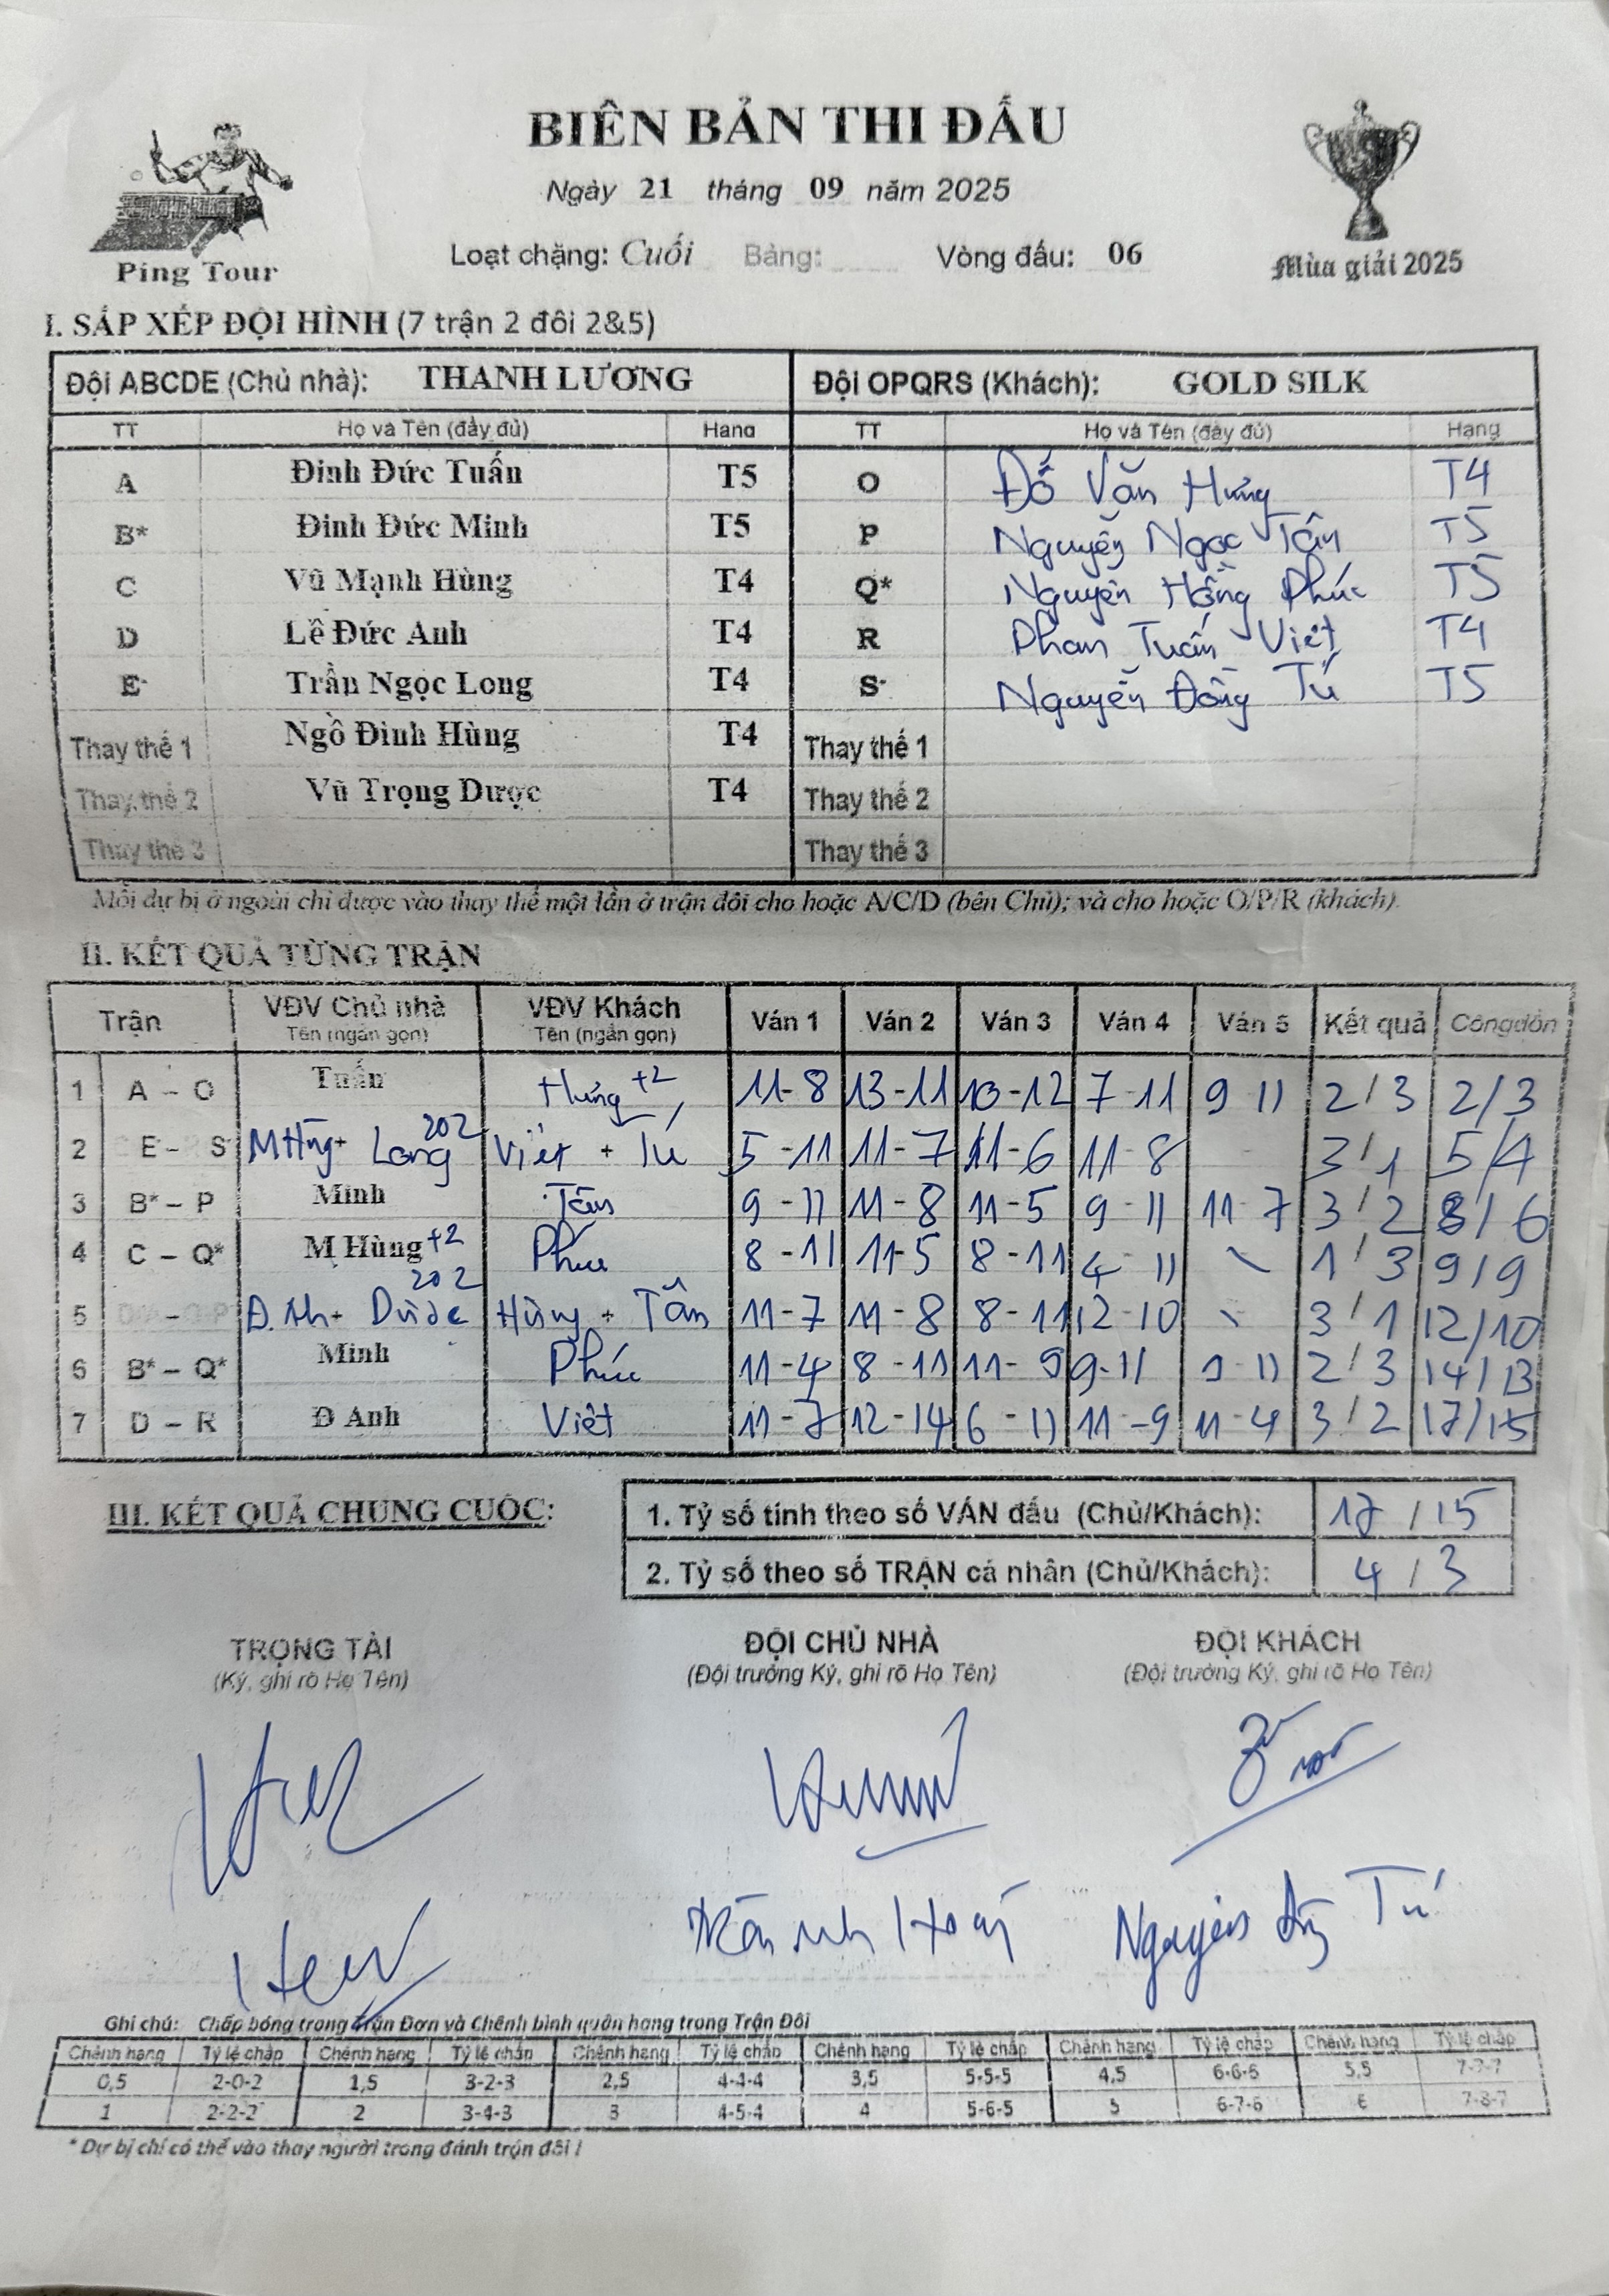 BIÊN BẢN THI ĐẤU
Ngày 21 tháng 09 năm 2025
Loạt chặng: Cuối Bảng: Vòng đấu: 06
Ping Tour
Mùa giải 2025
I. SẮP XẾP ĐỘI HÌNH (7 trận 2 đôi 2&5)
Đội ABCDE (Chủ nhà): THANH LƯƠNG Đội OPQRS (Khách): GOLD SILK
TT Họ và Tên (đầy đủ) Hạng TT Họ và Tên (đầy đủ) Hạng
A Đinh Đức Tuấn T5 O Đỗ Văn Hưng T4
B* Đinh Đức Minh T5 P Nguyễn Ngọc Tân T5
C Vũ Mạnh Hùng T4 Q* Nguyễn Hồng Phúc T5
D Lê Đức Anh T4 R Phan Tuấn Việt T4
E- Trần Ngọc Long T4 S- Nguyễn Đồng Tú T5
Thay thế 1 Ngô Đình Hùng T4 Thay thế 1
Thay thế 2 Vũ Trọng Dược T4 Thay thế 2
Thay thế 3 Thay thế 3
Mỗi dự bị ở ngoài chỉ được vào thay thế một lần ở trận đôi cho hoặc A/C/D (bên Chủ); và cho hoặc O/P/R (khách).
II. KẾT QUẢ TỪNG TRẬN
Trận VĐV Chủ nhà VĐV Khách Ván 1 Ván 2 Ván 3 Ván 4 Ván 5 Kết quả Cộngdồn
Tên (ngắn gọn) Tên (ngắn gọn)
1 A – O Tuấn Hưng +2 11-8 13-11 10-12 7-11 9 11 2/3 2/3
2 E- S MHùng+ Long 202 Việt + Tú 5-11 11-7 11-6 11-8 3/1 5/4
3 B* – P Minh Tân 9-11 11-8 11-5 9-11 11-7 3/2 8/6
4 C – Q* M Hùng +2 Phúc 8-11 11-5 8-11 4 11 1/3 9/9
5 Đ.Anh+ Dược 202 Hưng + Tân 11-7 11-8 8-11 12-10 3/1 12/10
6 B* – Q* Minh Phúc 11-4 8-11 11-9 9-11 9 11 2/3 14/13
7 D – R Đ Anh Việt 11-7 12-14 6-11 11-9 11-4 3/2 17/15
III. KẾT QUẢ CHUNG CUỘC:
1. Tỷ số tính theo số VÁN đấu (Chủ/Khách): 17 / 15
2. Tỷ số theo số TRẬN cá nhân (Chủ/Khách): 4 / 3
TRỌNG TÀI ĐỘI CHỦ NHÀ ĐỘI KHÁCH
(Ký, ghi rõ Họ Tên) (Đội trưởng Ký, ghi rõ Họ Tên) (Đội trưởng Ký, ghi rõ Họ Tên)
Nguyễn Tú
Ghi chú: Chấp bóng trong Trận Đơn và Chênh bình quân hạng trong Trận Đôi
Chênh hạng Tỷ lệ chấp Chênh hạng Tỷ lệ chấp Chênh hạng Tỷ lệ chấp Chênh hạng Tỷ lệ chấp Chênh hạng Tỷ lệ chấp Chênh hạng Tỷ lệ chấp
0,5 2-0-2 1,5 3-2-3 2,5 4-4-4 3,5 5-5-5 4,5 6-6-6 5,5 7-7-7
1 2-2-2 2 3-4-3 3 4-5-4 4 5-6-5 5 6-7-6 6 7-8-7
* Dự bị chỉ có thể vào thay người trong đánh trận đôi !